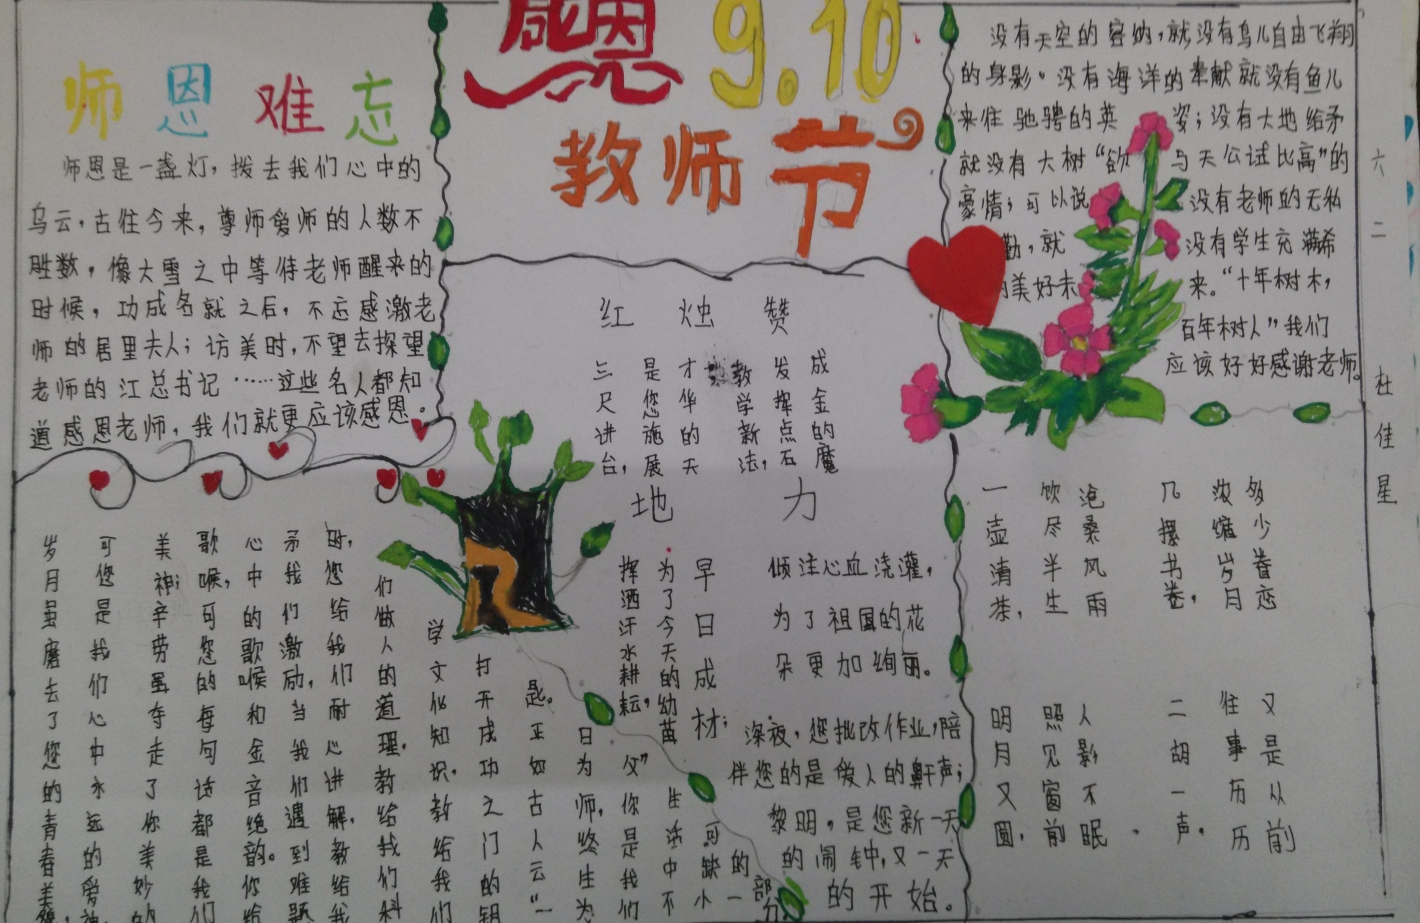 感恩 9.10
教师节
师恩难忘
师恩是一盏灯，拨去我们心中的
乌云，古往今来，尊师爱师的人数不
胜数，像大雪之中等侍老师醒来的
时候，功成名就之后，不忘感激老
师的居里夫人；访美时，不望去探望
老师的江总书记……这些名人都知
道感恩老师，我们就更应该感恩。
没有天空的容纳，就没有鸟儿自由飞翔
的身影。没有海洋的奉献就没有鱼儿
来往驰骋的英姿；没有大地给矛
就没有大树“欲与天公试比高”的
豪情；可以说没有老师的无私
勤，就没有学生充满希
的美好未来。“十年树木，
百年树人”我们
应该好好感谢老师。
六二 杜佳星
红烛赞
三尺讲台，
是您施展
才华的天
地
教学新法，
发挥点石
成金的魔
力
挥洒汗水耕耘，
为了今天的幼苗
早日成材；
倾注心血浇灌，
为了祖国的花
朵更加绚丽。
深夜，您批改作业，陪
伴您的是傻人的鼾声；
黎明，是您新一天
的闹钟，又一天
的开始。
岁月虽磨去了您的青春美
可您是我们心中永远的爱神
美神；辛劳虽夺走了你美妙的
歌喉，可您的每句话都是我们
心中的歌喉和金音绝韵。你给
矛我们激励，当我们遇到难题
时，您给我们耐心讲解，教给我
们做人的道理，教给我们科
学文化知识。教给我们
打开成功之门的钥
匙。正如古人云“一
日为师，终生为
父”你是我们
生活中不
可缺小
的一部分
一壶清茶，
饮尽半生
沧桑风雨
几摞书卷，
浓缩岁月
多少眷恋
明月又圆，
照见窗前
人影不眠。
二胡一声，
往事历历
又是从前